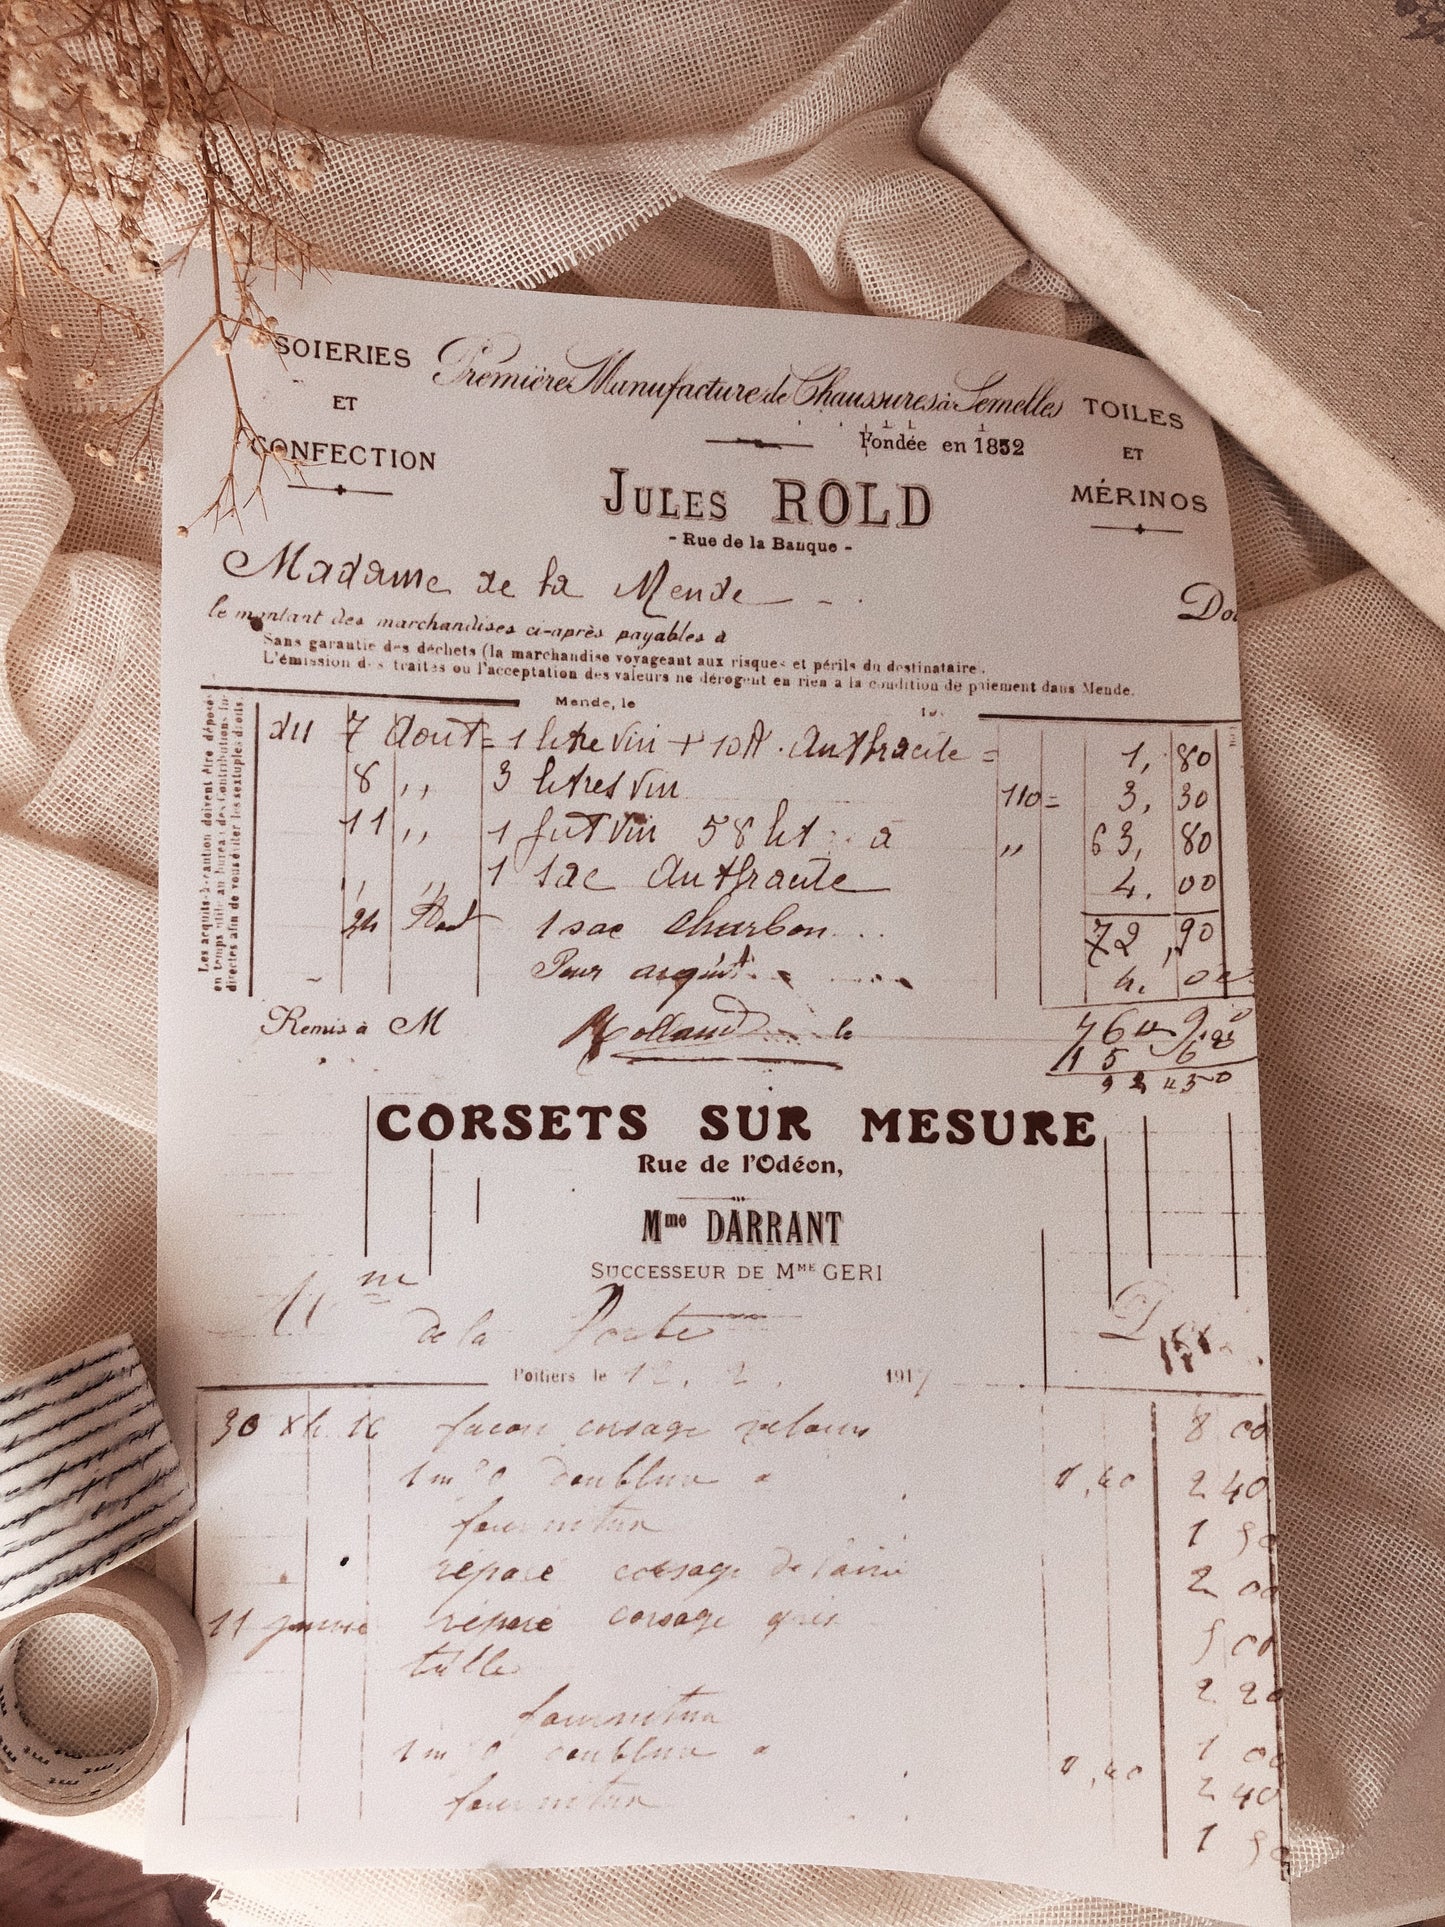 SOIERIES
ET
CONFECTION
Première Manufacture de Chaussures à Semelles
Fondée en 1852
TOILES
ET
MÉRINOS
JULES ROLD
- Rue de la Banque -
Madame de la Mende
Doi
le montant des marchandises ci-après payables à
Sans garantie des déchets (la marchandise voyageant aux risques et périls du destinataire.
L'émission des traites ou l'acceptation des valeurs ne dérogent en rien à la condition de paiement dans Mende.
Mende, le 19
Les acquits-à-caution doivent être déposés
en temps utile au bureau des Contributions In-
directes afin de vous éviter les sextuples droits
du 7 Aout = 1 litre vin + 10 K. Anthracite = 1, 80
8 ,, 3 litres vin 110 = 3, 30
11 ,, 1 fut vin 58 lit à ,, 63, 80
,, ,, 1 sac Anthracite 4. 00
24 Aout 1 sac charbon 72, 90
Pour acquit 4. 00
Remis à M Rolland le 76 90
15 6
92 50
CORSETS SUR MESURE
Rue de l'Odéon,
Mme DARRANT
SUCCESSEUR DE MME GERI
Mme
de la Porte
D
Poitiers le 12. 2. 1917
30 façon corsage velours 8 00
1 m 20 doublure a 2 40
fourniture 1 50
réparé corsage de 2 00
11 réparé corsage gris 5 00
tulle 2 20
fourniture 1 00
1 m 20 doublure a 2 40
fourniture 1 50